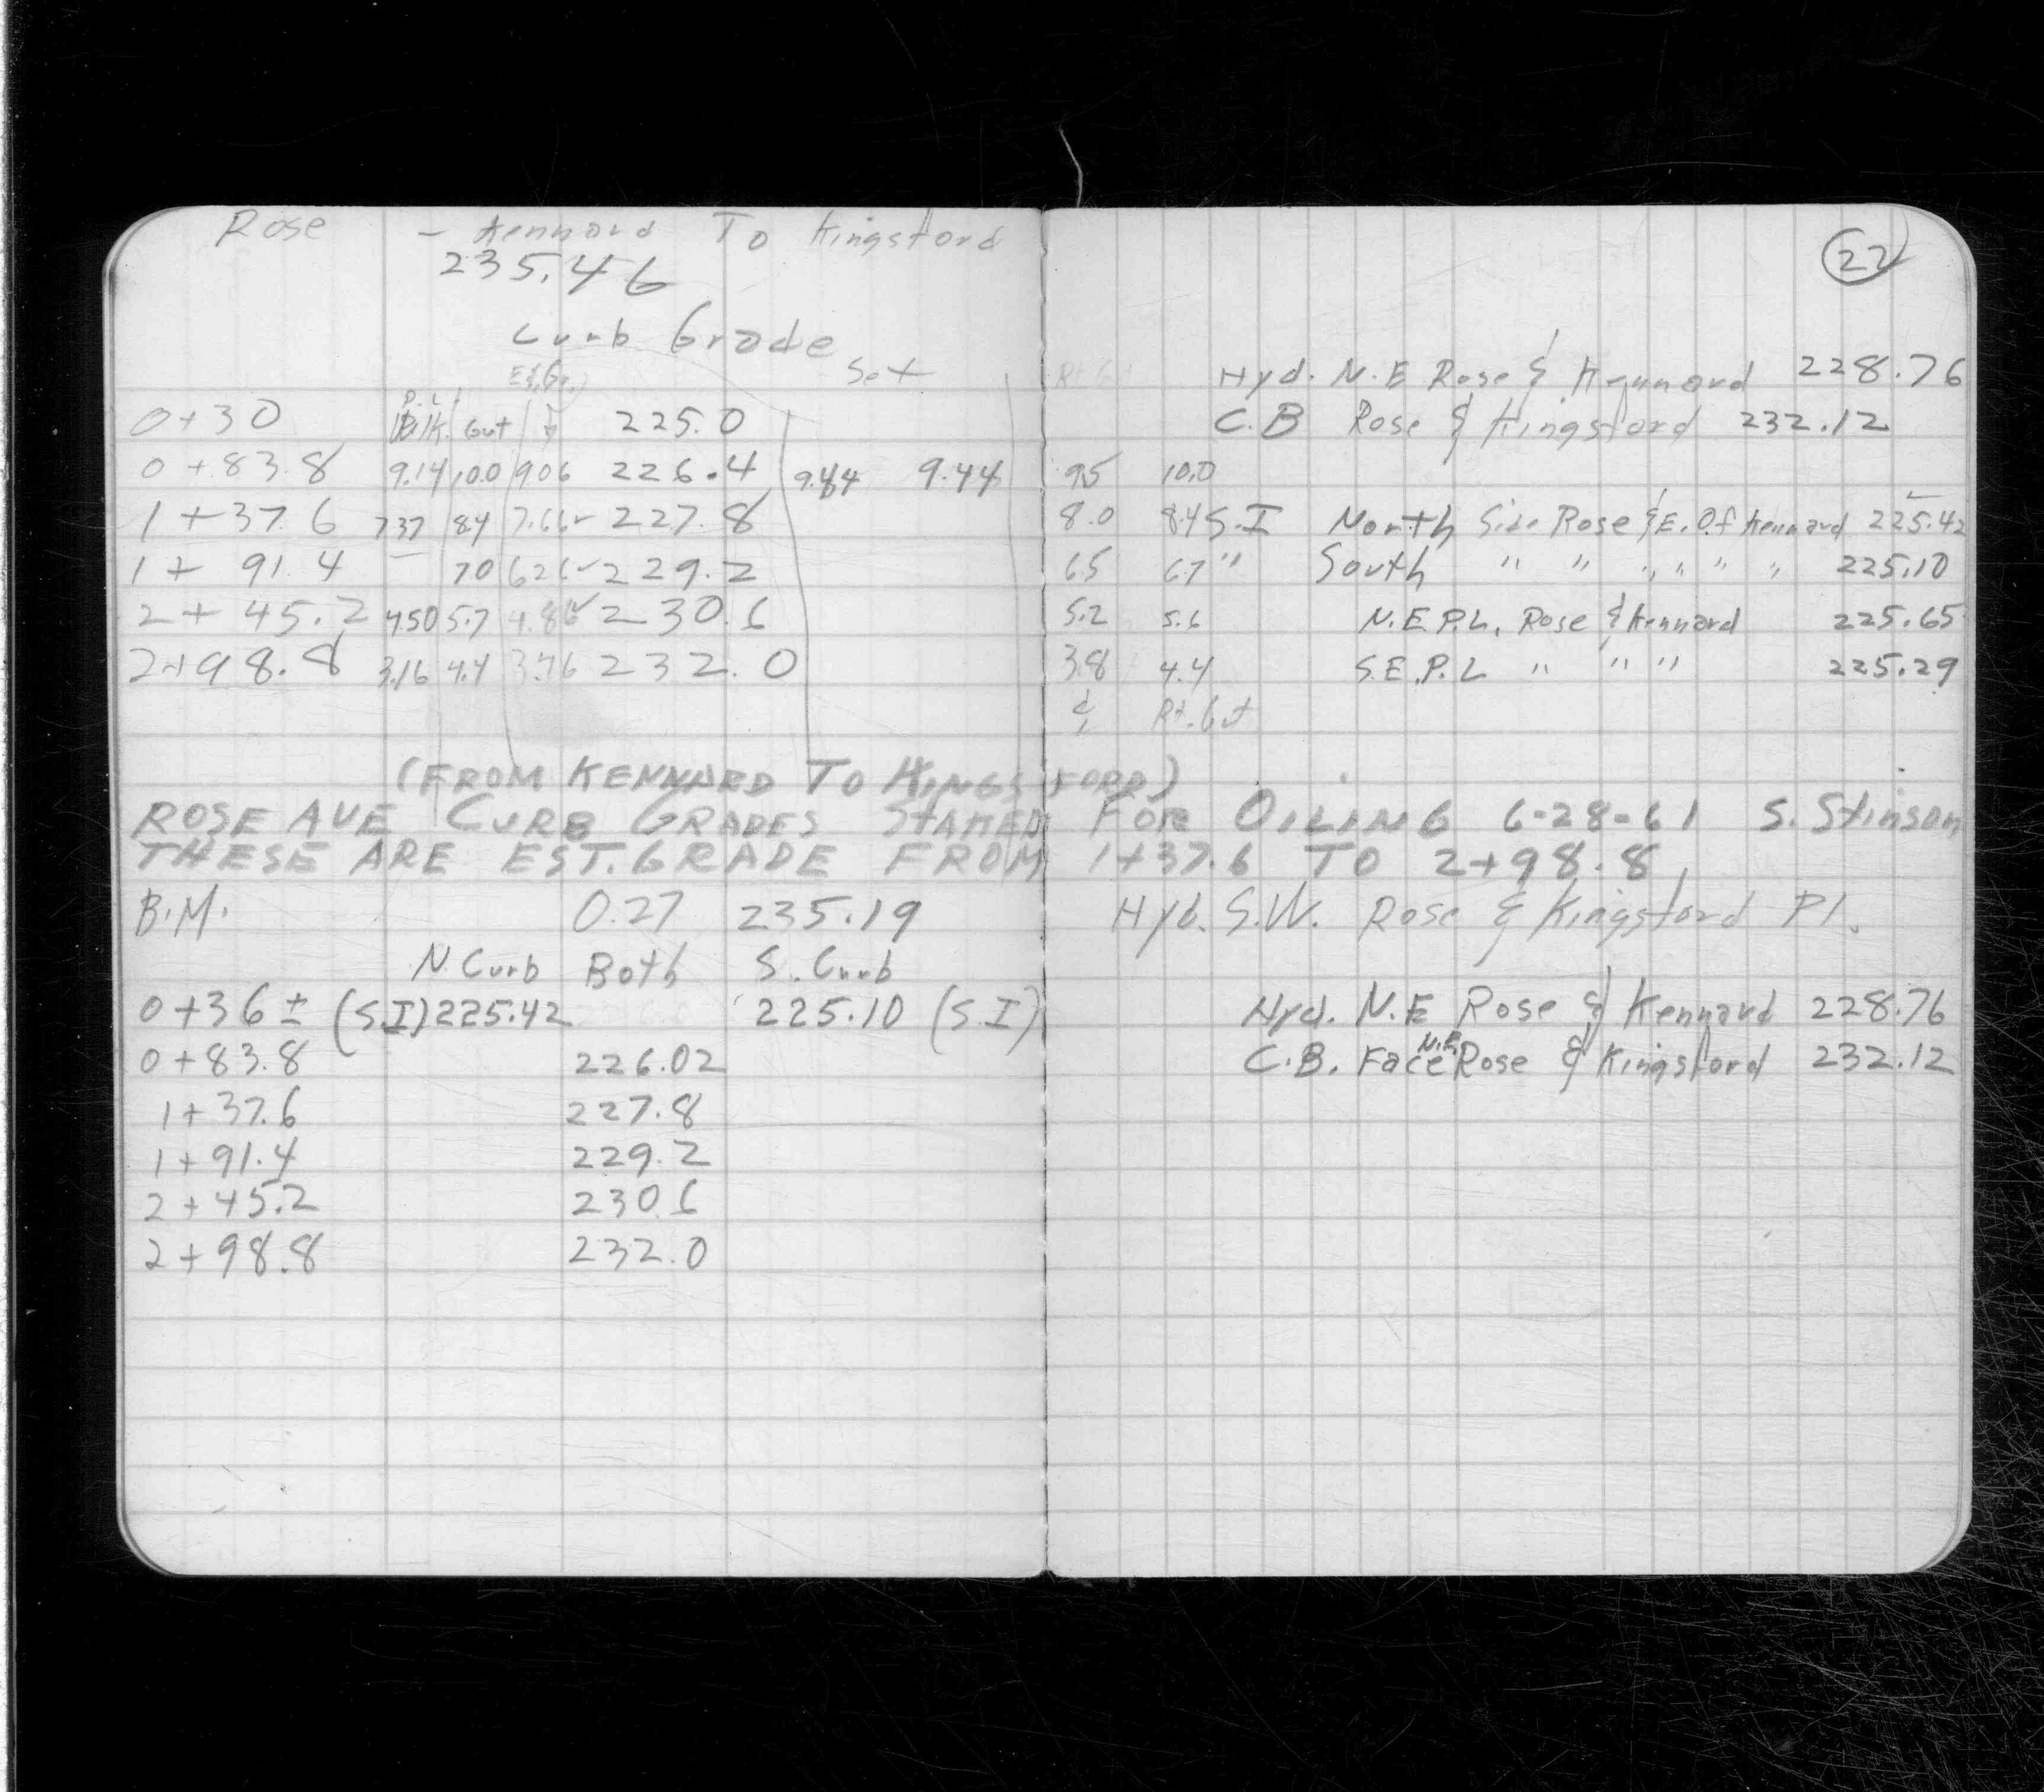 Rose - Kennard To Kingsford
235.46
22
Curb Grade
Set
Hyd. N.E Rose & Kennard 228.76
P.L.
0+30 Blk. Gut 225.0
C.B Rose & Kingsford 232.12
0+83.8 9.14 10.0 9.06 226.4 9.44 9.44 9.5 10.0
1+37.6 7.37 8.4 7.66 227.8 8.0 8.4 S.I North Side Rose & E. Of Kennard 225.42
1+91.4 — 7.0 6.26 229.2 6.5 6.7 " South " " " " " " 225.10
2+45.2 4.50 5.7 4.86 230.6 5.2 5.6 N.E.P.L. Rose & Kennard 225.65
2+98.8 3.16 4.4 232.0 3.8 4.4 S.E.P.L " " " 225.29
Rt. Gut
(FROM KENNARD TO KINGSFORD)
ROSE AVE CURB GRADES STAKED FOR OILING 6-28-61 S. Stinson
THESE ARE EST. GRADE FROM 1+37.6 TO 2+98.8
B.M. 0.27 235.19 Hyd. S.W. Rose & Kingsford Pl.
N. Curb Both S. Curb
0+36 ± (S.I) 225.42 225.10 (S.I) Hyd. N.E Rose & Kennard 228.76
0+83.8 226.02 C.B. Face N.E. Rose & Kingsford 232.12
1+37.6 227.8
1+91.4 229.2
2+45.2 230.6
2+98.8 232.0